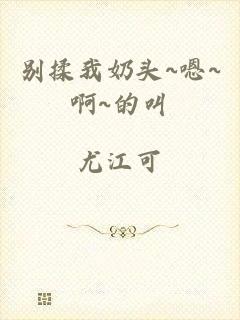 别揉我奶头~嗯~
啊~的叫
尤江可